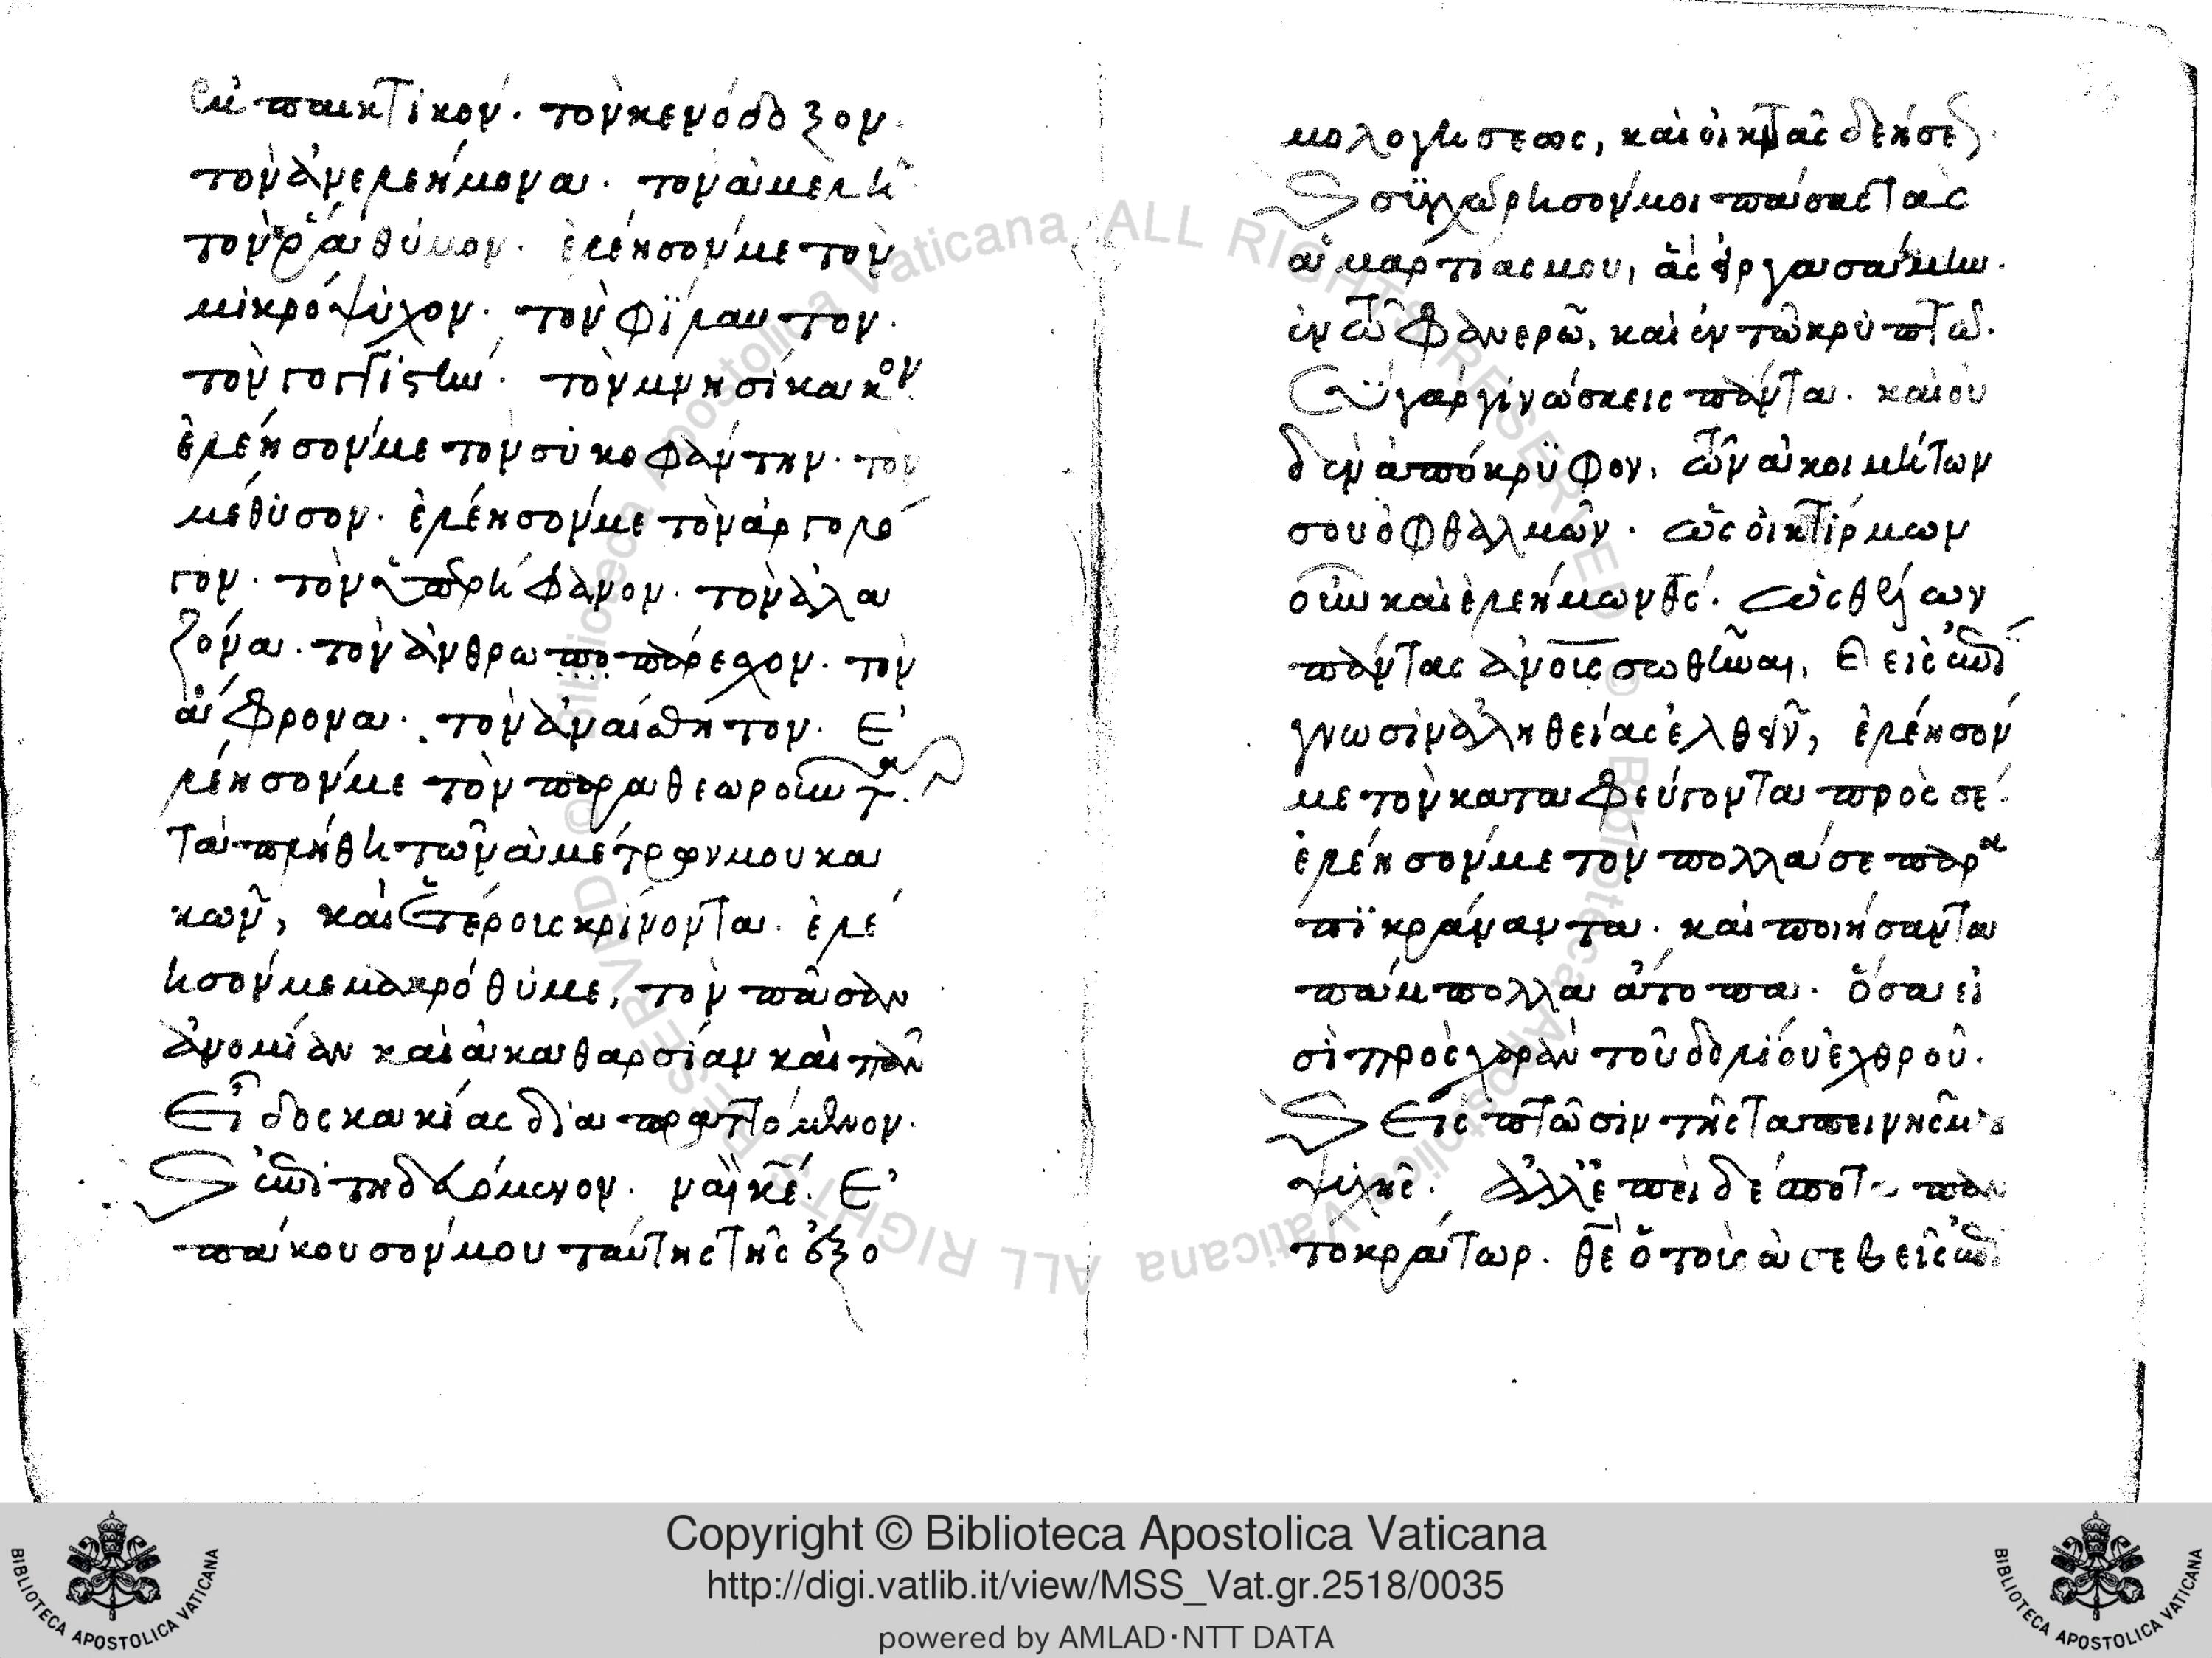 ἐμπαικτικόν. τὸν κενόδοξον.
τὸν ἀνελεήμονα. τὸν ἀμελῆ.
τὸν ῥάθυμον. ἐλέησόν με τὸν
μικρόψυχον. τὸν φίλαυτον.
τὸν γογγιστὴν. τὸν μνησίκακον.
ἐλέησόν με τὸν συκοφάντην. τὸν
μέθυσον. ἐλέησόν με τὸν ἀργολό
γον. τὸν ὑπερήφανον. τὸν ἀλα
ζόνα. τὸν ἀνθρωποπάρεσκον. τὸν
ἄφρονα. τὸν ἀναίσθητον. ἐ
λέησόν με τὸν παραθεωροῦντα
τὰ πλήθη τῶν ἀμέτρων μου κα
κῶν, καὶ ἑτέροις κρίνοντα. ἐλέ
ησόν με μακρόθυμε, τὸν πᾶσαν
ἀνομίαν καὶ ἀκαθαρσίαν καὶ πᾶν
εἶδος κακίας διαπραττόμενον.
ἐπιτηδευόμενον. ναὶ κε. ἐ
πάκουσόν μου ταύτης τῆς ἐξο
μολογήσεως, καὶ οἰκτρᾶς δεήσεως.
συγχώρησόν μοι πάσας τὰς
ἁμαρτίας μου, ἃς ἠργασάμην.
ἐν τῶ φανερῶ, καὶ ἐν τῶ κρυπτῶ.
Σὺ γὰρ γινώσκεις πάντα. καὶ οὐ
δὲν ἀπόκρυφον, τῶν ἀκοιμήτων
σου ὀφθαλμῶν. ὡς οἰκτίρμων
οὖν καὶ ἐλεήμων θς. ὡς θέλων
πάντας ἀνους σωθῆναι, καὶ εἰς ἐπί
γνωσιν ἀληθείας ἐλθεῖν, ἐλέησόν
με τὸν καταφεύγοντα πρὸς σέ.
ἐλέησόν με τὸν πολλά σε παρα
πικράναντα. καὶ ποιήσαντα
πάμπολλα ἄτοπα. ὅσα εἰ
σὶ πρὸς χαρὰν τοῦ δολίου ἐχθροῦ.
εἰς πτῶσιν τῆς ταπεινῆς μου
ψυχῆς. ἀλλ' ἐπεὶ δέσποτα παν
τοκράτωρ. θε ὁ τοὺς ἀσεβεῖς ἐπι
Copyright © Biblioteca Apostolica Vaticana
http://digi.vatlib.it/view/MSS_Vat.gr.2518/0035
powered by AMLAD·NTT DATA
BIBLIOTECA APOSTOLICA VATICANA
BIBLIOTECA APOSTOLICA VATICANA
© Biblioteca Apostolica Vaticana ALL RIGHTS RESERVED
© Biblioteca Apostolica Vaticana ALL RIGHTS RESERVED